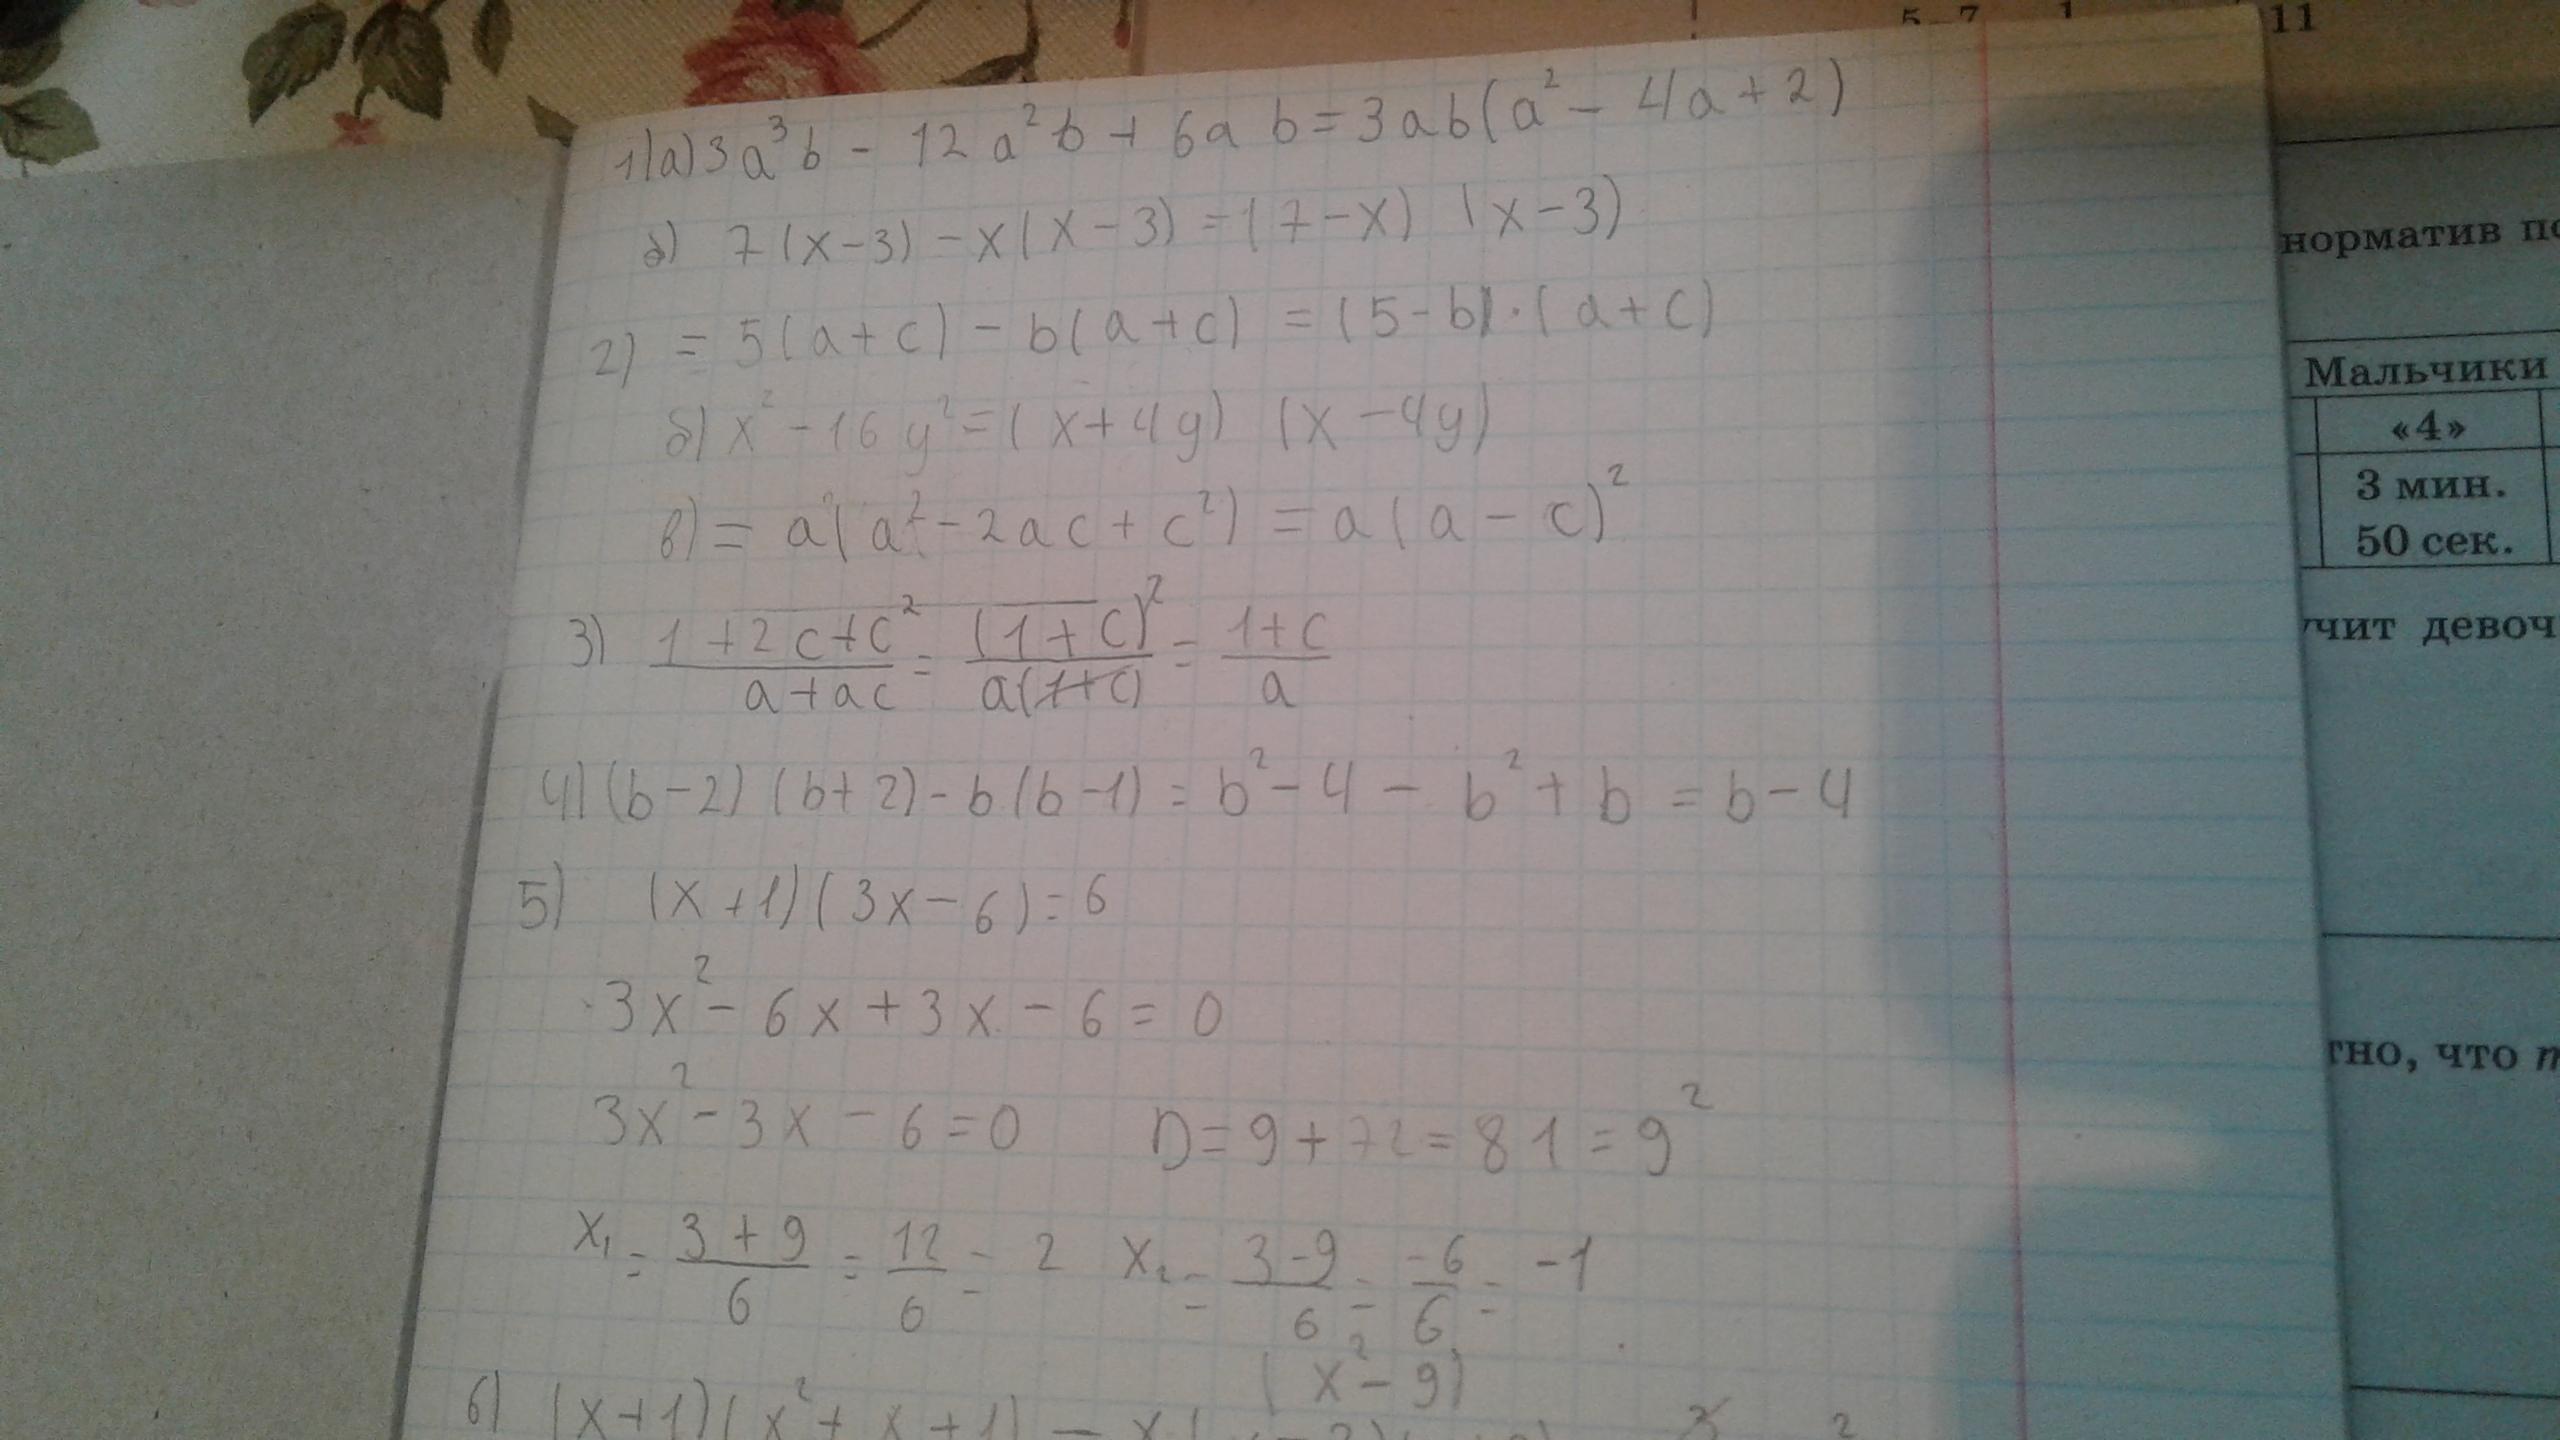 5 7 1 11
1) а) 3a³b - 12a²b + 6ab = 3ab(a² - 4a + 2)
б) 7(x-3) - x(x-3) = (7-x) (x-3)
2) = 5(a+c) - b(a+c) = (5-b)·(a+c)
б) x² - 16y² = (x+4y) (x-4y)
в) = a(a² - 2ac + c²) = a(a-c)²
3) (1+2c+c²)/(a+ac) = (1+c)²/(a(1+c)) = (1+c)/a
4) (b-2) (b+2) - b(b-1) = b² - 4 - b² + b = b - 4
5) (x+1)(3x-6) = 6
3x² - 6x + 3x - 6 = 0
3x² - 3x - 6 = 0 D = 9 + 72 = 81 = 9²
x₁ = (3+9)/6 = 12/6 = 2 x₂ = (3-9)/6 = -6/6 = -1
(x² - 9)
6) (x+1)(x² + x + 1) - x(
норматив по
Мальчики
«4»
3 мин.
50 сек.
учит девоч
тно, что m